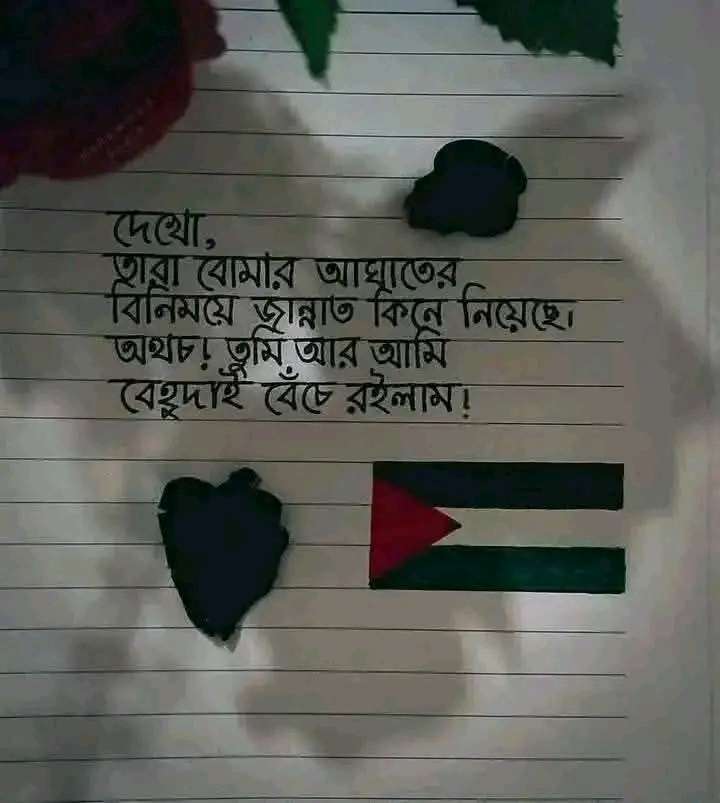 দেখো,
তারা বোমার আঘাতের
বিনিময়ে জান্নাত কিনে নিয়েছে।
অথচ! তুমি আর আমি
বেহুদাই বেঁচে রইলাম!